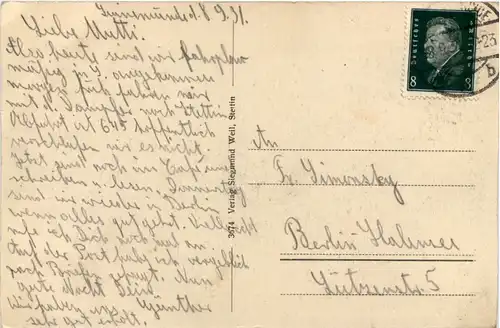 Swinemünde d. 8.9.31.
Liebe Mutti!
Also heute sind wir fahrplan
mäßig in S. angekommen
morgen früh fahren wir
mit d. Dampfer nach Stettin
Abfahrt ist 6 45 hoffentlich
verschlafen wir es nicht.
Jetzt sind noch im Café
schreiben u. lesen. Donnerstag
sind wir wieder in Berlin
wenn alles gut geht. Vielleicht
rufe ich Dich noch mal an.
Auf der Post hab ich vergeblich
nach Briefen gefragt. Nun
gute Nacht Dein
Günther
Wir haben uns
sehr gut erholt.
3674 Verlag Siegmund Weil, Stettin
Deutsches Reich
8 8
b
An
Fr. Simonsky
Berlin-Halensee
Lützenstr. 5